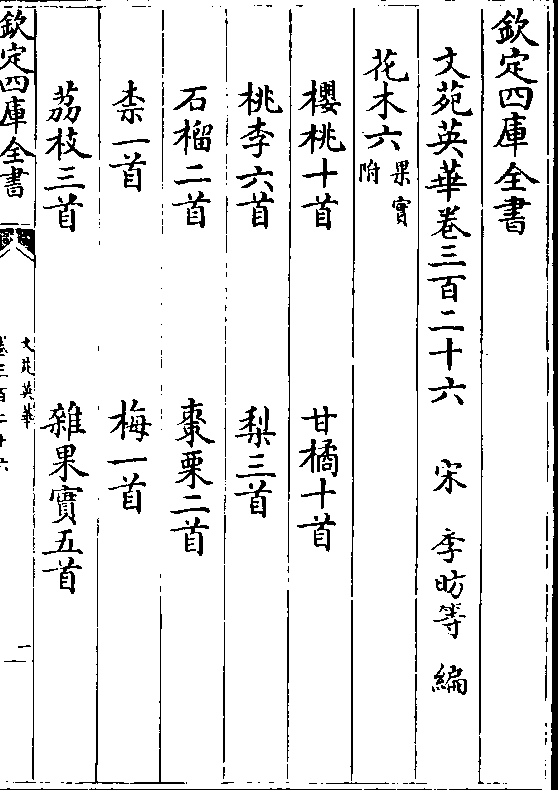 欽定四庫全書
文苑英華卷三百二十六 宋 李昉等 編
花木六 果實附
櫻桃十首 甘橘十首
桃李六首 梨三首
石榴二首 棗栗二首
柰一首 梅一首
荔枝三首 雜果實五首
欽定四庫全書
文苑英華
卷三百二十六